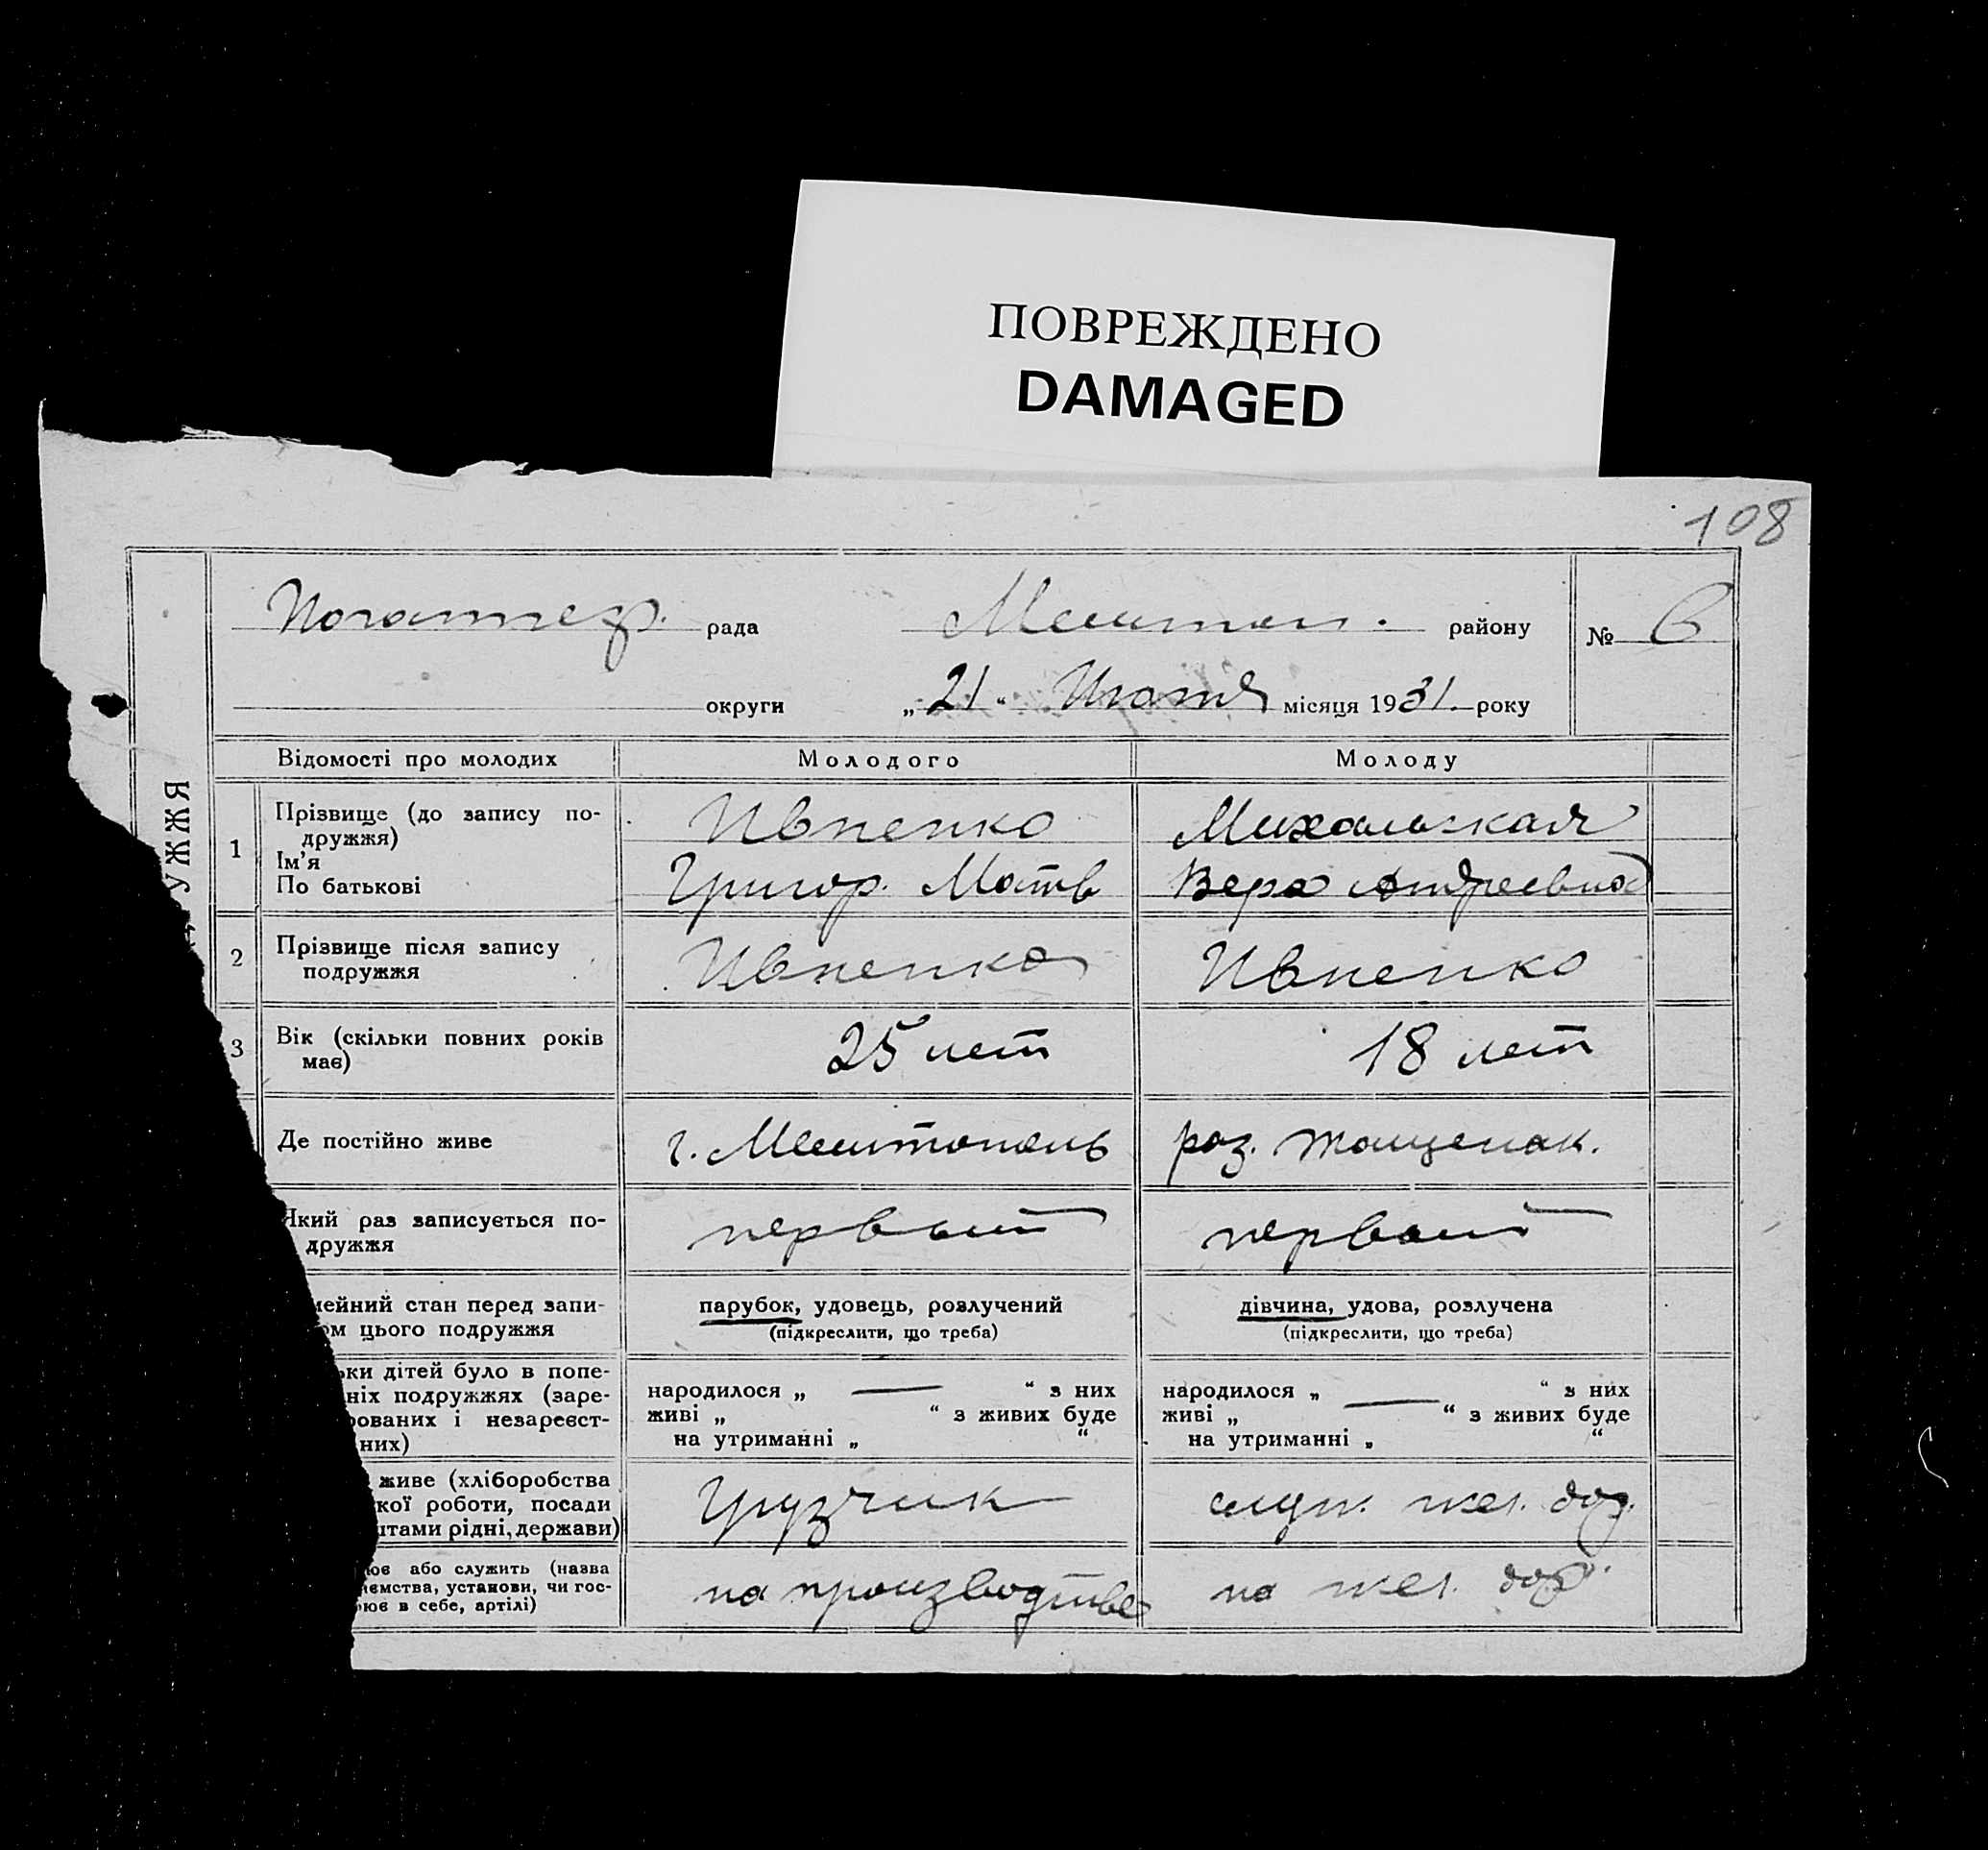 ПОВРЕЖДЕНО
DAMAGED
108
рада
района
№ 6
округи
„ 21 “ Июня місяця 1931. року
УЖЖЯ
Відомості про молодих
Молодого
Молоду
1
Прізвище (до запису по-
дружжя)
Ім’я
По батькові
Ивненко
Григор. Матв
Михальская
Вера Андреевна
2
Прізвище після запису
подружжя
Ивненко
Ивненко
3
Вік (скільки повних років
має)
25 лет
18 лет
Де постійно живе
г. Мелитополь
раз. Тащенак.
Який раз записується по-
дружжя
первый
первый
мейний стан перед запи-
ом цього подружжя
парубок, удовець, розлучений
(підкреслити, що треба)
дівчина, удова, розлучена
(підкреслити, що треба)
ки дітей було в попе-
ніх подружжях (заре-
рованих і незареєст-
них)
народилося „ — “ з них
живі „ “ з живих буде
на утриманні „ “
народилося „ — “ з них
живі „ “ з живих буде
на утриманні „ “
живе (хліборобства
кої роботи, посади
штами рідні, держави)
Грузчик
служ. жел. дор.
ює або служить (назва
ємства, установи, чи гос-
рює в себе, артілі)
на производстве
на жел. дор.